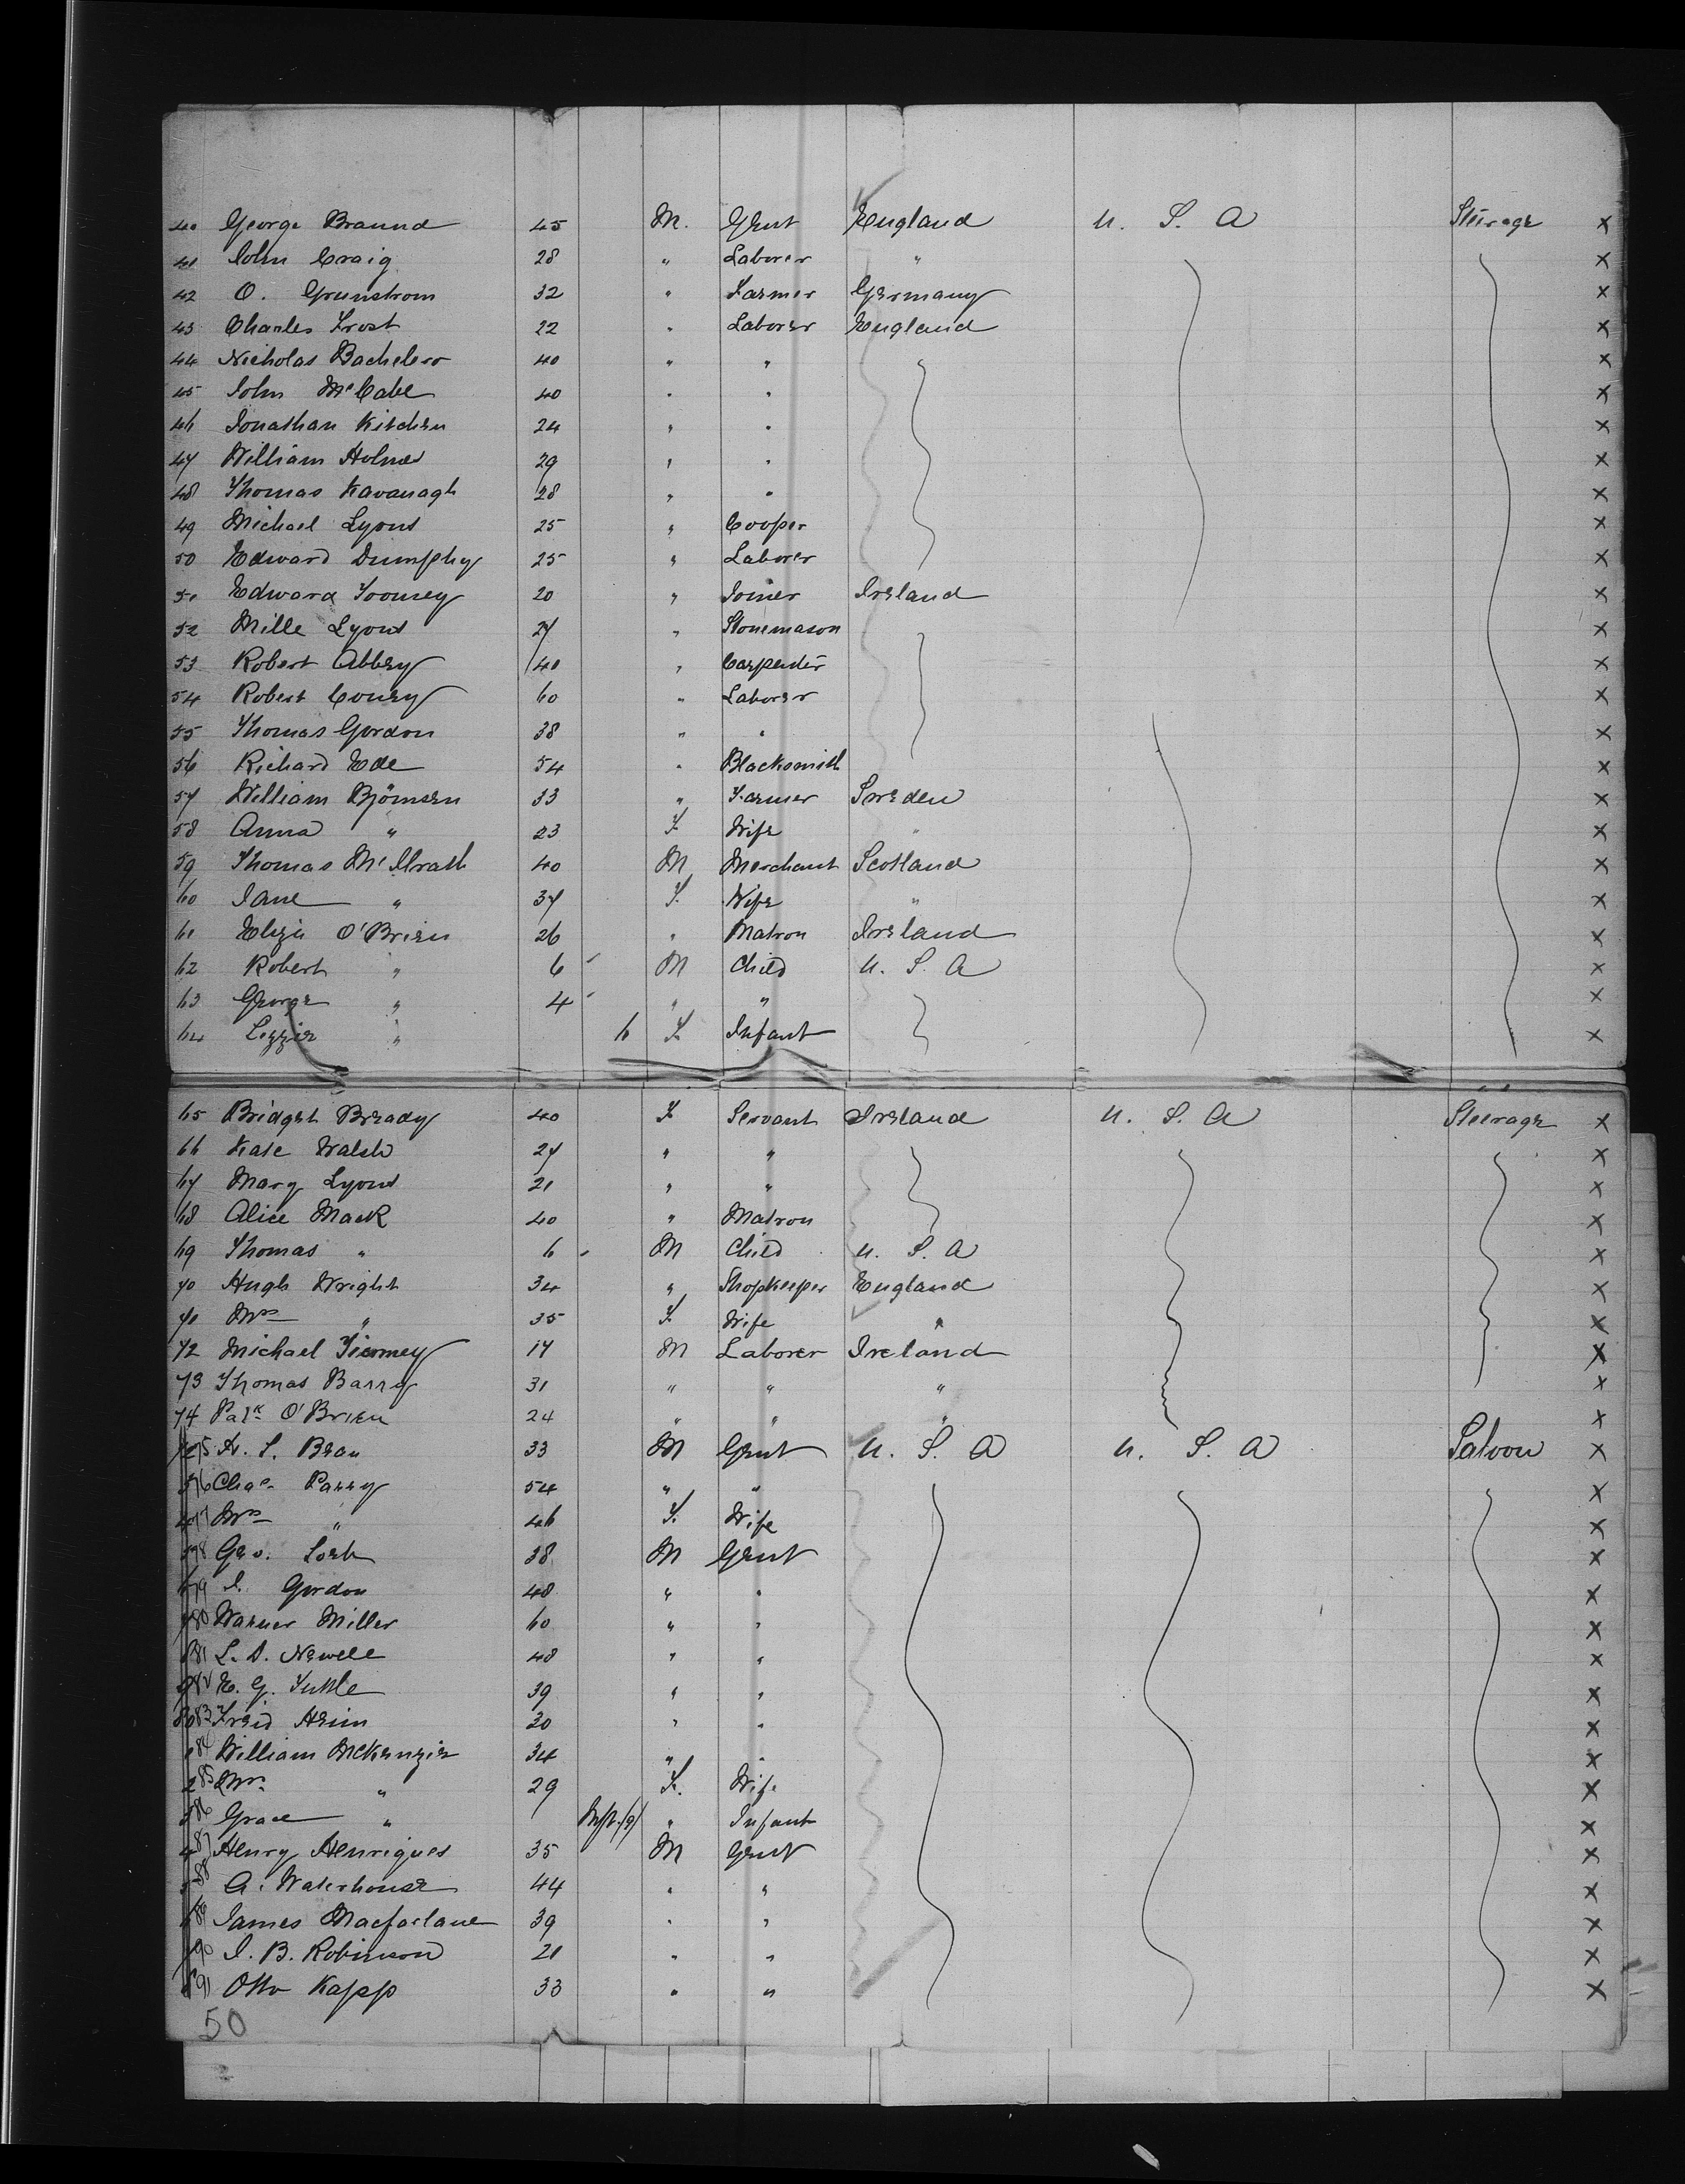 40 George Braund 45 M. Gent England U. S. A Steerage x
41 John Craig 28 " Laborer " x
42 O. Grunstrom 32 " Farmer Germany x
43 Charles Frost 22 " Laborer England x
44 Nicholas Bachelor 40 " " x
45 John McCabe 40 " " x
46 Jonathan Kitchen 24 " " x
47 William Holmes 29 " " x
48 Thomas Kavanagh 28 " " x
49 Michael Lyons 25 " Cooper x
50 Edward Dumphy 25 " Laborer x
51 Edward Toomey 20 " Joiner Ireland x
52 Mille Lyons 27 " Stonemason x
53 Robert Abbey 40 " Carpenter x
54 Robert Coney 60 " Laborer x
55 Thomas Gordon 38 " " x
56 Richard Ede 54 " Blacksmith x
57 William Björnsen 33 " Farmer Sweden x
58 Anna " 23 F. Wife " x
59 Thomas McIlrath 40 M Merchant Scotland x
60 Jane " 37 F. Wife " x
61 Eliza O'Brien 26 " Matron Ireland x
62 Robert " 6 M Child U. S. A x
63 George " 4 " " x
64 Lizzie " 6 F. Infant x
65 Bridget Bready 40 F. Servant Ireland U. S. A Steerage x
66 Kate Walsh 27 " " x
67 Mary Lyons 21 " " x
68 Alice Mack 40 " Matron x
69 Thomas " 6 M Child U. S. A x
70 Hugh Wright 34 " Shopkeeper England x
71 Mrs " 35 F. Wife " x
72 Michael Tierney 17 M Laborer Ireland x
73 Thomas Barry 31 " " " x
74 Patk O'Brien 24 " " " x
75 33 M Gent U. S. A U. S. A Saloon x
76 Chas Parry 54 " " x
77 Mrs " 46 F. Wife x
78 Geo. 38 M Gent x
79 J. Gordon 48 " " x
80 Warner Miller 60 " " x
81 L. D. Newell 48 " " x
82 E. G. Tuttle 39 " " x
83 Fred Heim 30 " " x
84 William McKenzie 34 " " x
85 Mrs " 29 F. Wife x
86 Grace " " Infant x
87 Henry Henriques 35 M Gent x
88 A. Waterhouse 44 " " x
89 James Macfarlane 39 " " x
90 J. B. Robinson 21 " " x
91 Otto Kapp 33 " " x
50